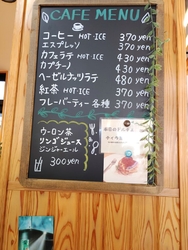 CAFE MENU
コーヒー HOT・ICE 370yen
エスプレッソ 370yen
カフェラテ HOT・ICE 430yen
カプチーノ 430yen
ヘーゼルナッツラテ 480yen
紅茶 HOT・ICE 370yen
フレーバーティー 各種 370yen
ウーロン茶
リンゴジュース
ジンジャーエール
300yen